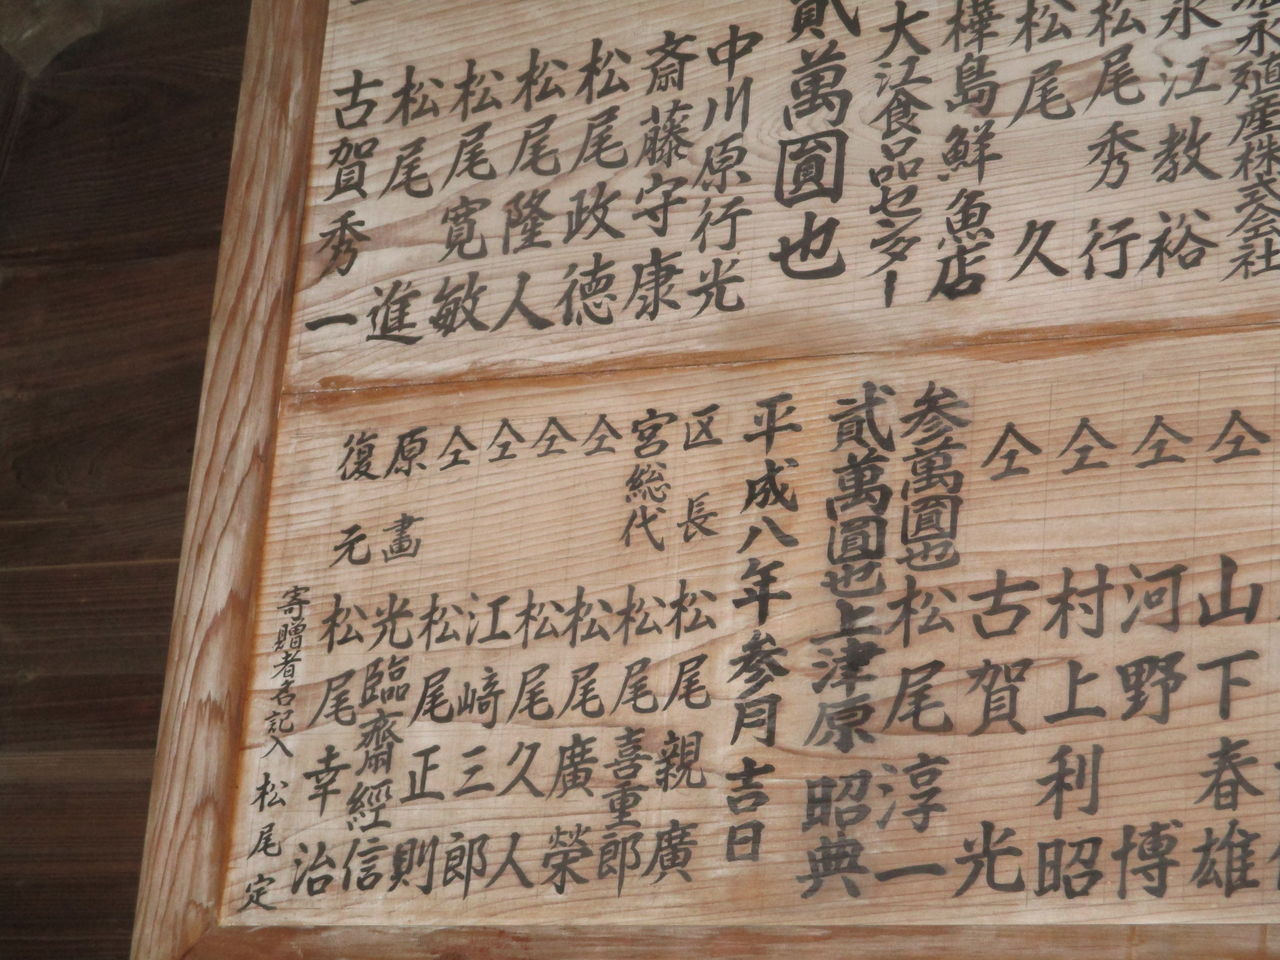 永殖産株式会社
永江教裕
松尾秀行
松尾久
樺島鮮魚店
大江食品センター
貳萬圓也
中川原行光
斎藤守康
松尾政德
松尾隆人
松尾寛敏
松尾進
古賀秀一
仝 山下春雄
仝 河野博
仝 村上利昭
仝 古賀光
参萬圓也 松尾淳一
貳萬圓也 上津原昭典
平成八年参月吉日
区長 松尾親廣
宮総代 松尾喜重郎
仝 松尾廣榮
仝 松尾久人
仝 江﨑三郎
仝 松尾正則
原畫 光臨齋經信
復元 松尾幸治
寄贈者名記入 松尾定